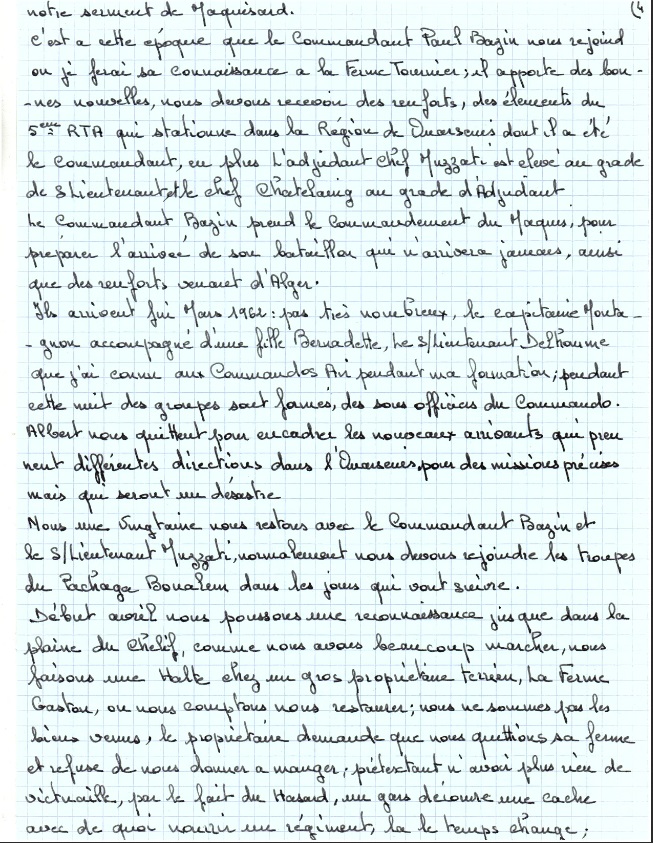 notre serment de Maquisard. (4
C'est a cette epoque que le Commandant Paul Bazin nous rejoind
ou je ferai sa connaissance a la Ferme Tournier; il apporte des bon-
-nes nouvelles, nous devons recevoir des renforts, des éléments du
5ème RTA qui stationne dans la Région de Ouarsenis dont il a été
le Commandant, en plus L'adjudant Chef Muzzati est elevé au grade
de S Lieutenant, et le chef Chatelanig au grade d'Adjudant
Le Commandant Bazin prend le Commandement du Maquis, pour
préparer l'arrivée de son bataillon qui n'arrivera jamais, ainsi
que des renforts venant d'Alger.
Ils arrivent fin Mars 1962: pas très nombreux, le capitaine Monta-
-gnon accompagné d'une fille Bernadette, Le S/Lieutenant Delhomme
que j'ai connu aux Commandos Air pendant ma formation; pendant
cette nuit des groupes sont formés, des sous officiers du Commando.
Albert nous quittent pour encadrer les nouveaux arrivants qui pren
nent différentes directions dans l'Ouarsenis, pour des missions précises
mais qui seront un désastre
Nous une vingtaine nous restons avec le Commandant Bazin et
le S/Lieutenant Muzzati, normalement nous devons rejoindre les troupes
du Bachaga Boualem dans les jours qui vont suivre.
Début avril nous poussons une reconnaissance jusque dans la
plaine du Chélif, comme nous avons beaucoup marcher, nous
faisons une Halte chez un gros propriétaire terrien, La Ferme
Gaston, ou nous comptons nous restaurer; nous ne sommes pas les
biens venus, le propriétaire demande que nous quittions sa ferme
et refuse de nous donner a manger; prétextant n'avoir plus rien de
victuaille, par le fait du Hasard, un gars découvre une cache
avec de quoi nourrir un régiment, la le temps change;